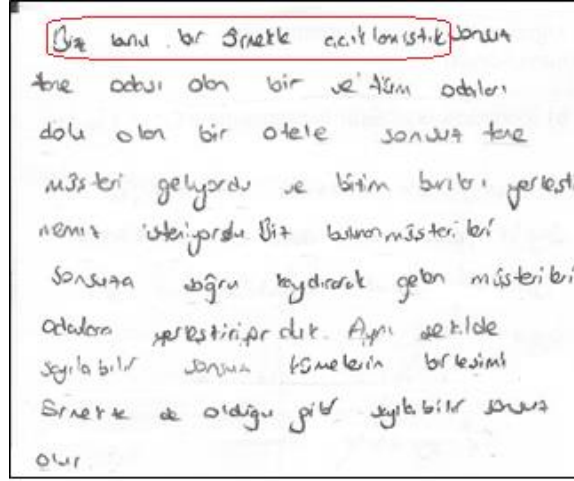 Biz bunu bir örnekle açıklamıştık sonsuz
tane odası olan bir ve tüm odaları
dolu olan bir otele sonsuz tane
müşteri geliyordu ve bizim bunları yerleşti
memiz isteniyordu Biz bütün müşterileri
sonsuza doğru kaydırarak gelen müşterileri
odalara yerleştiriyorduk. Aynı şekilde
sayılabilir sonsuz kümelerin birleşimi
örnekte de olduğu gibi sayılabilir sonsuz
olur.